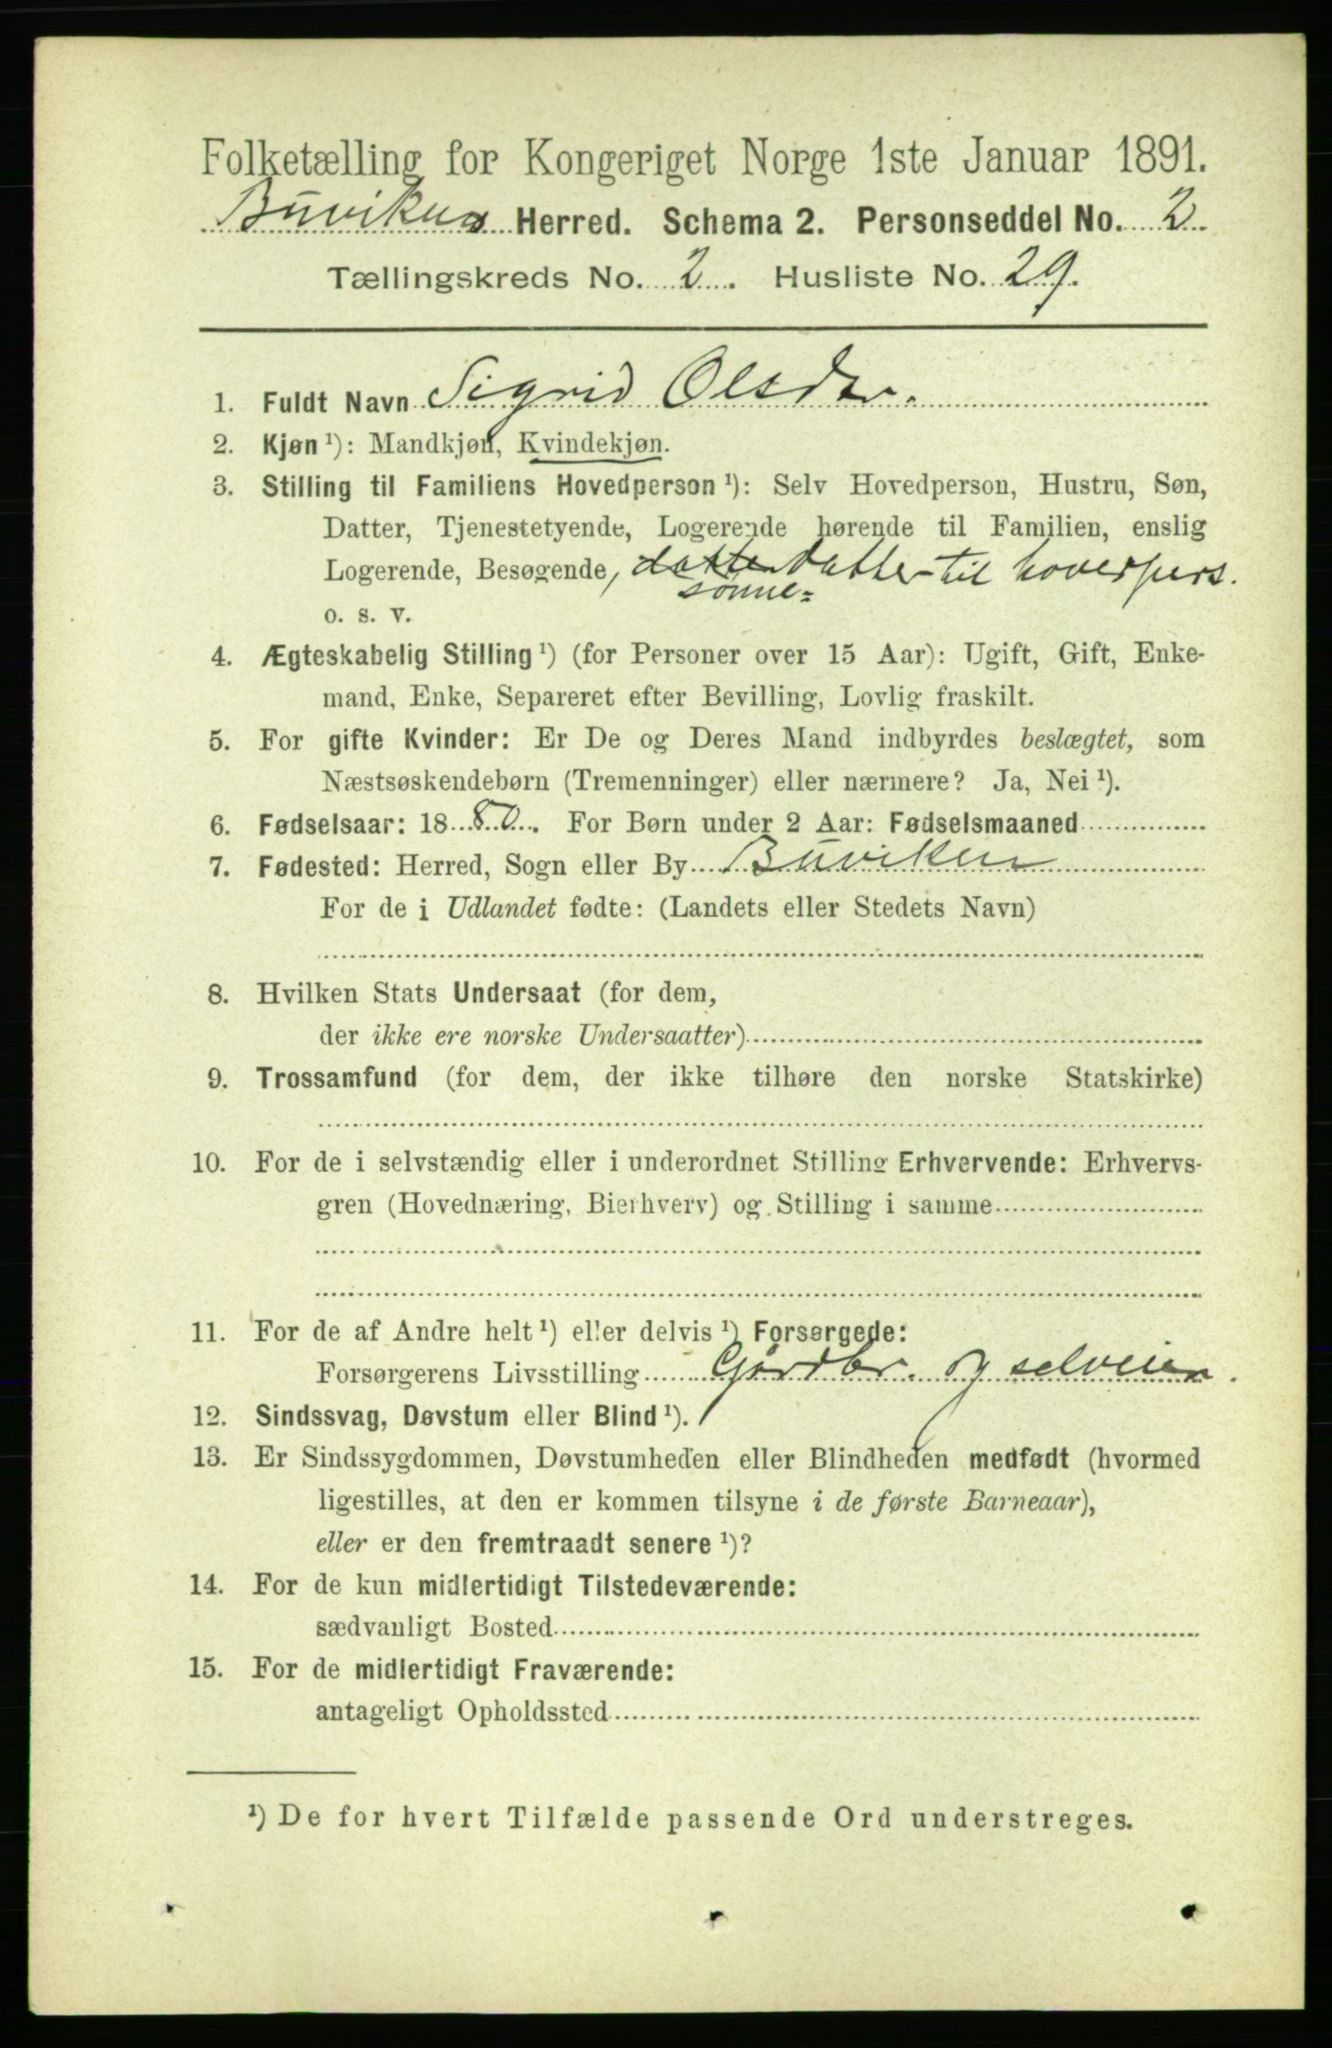 Folketælling for Kongeriget Norge 1ste Januar 1891.
Buvikens Herred. Schema 2. Personseddel No. 2.
Tællingskreds No. 2. Husliste No. 29.
1. Fuldt Navn Sigrid Olsdtr.
2. Kjøn ¹): Mandkjøn, Kvindekjøn.
3. Stilling til Familiens Hovedperson ¹): Selv Hovedperson, Hustru, Søn,
Datter, Tjenestetyende, Logerende hørende til Familien, enslig
Logerende, Besøgende, datter datter til hoverpers.
sønne-
o. s. v.
4. Ægteskabelig Stilling ¹) (for Personer over 15 Aar): Ugift, Gift, Enke-
mand, Enke, Separeret efter Bevilling, Lovlig fraskilt.
5. For gifte Kvinder: Er De og Deres Mand indbyrdes beslægtet, som
Næstsøskendebørn (Tremenninger) eller nærmere? Ja, Nei ¹).
6. Fødselsaar: 1880. For Børn under 2 Aar: Fødselsmaaned
7. Fødested: Herred, Sogn eller By Buviken
For de i Udlandet fødte: (Landets eller Stedets Navn)
8. Hvilken Stats Undersaat (for dem,
der ikke ere norske Undersaatter)
9. Trossamfund (for dem, der ikke tilhøre den norske Statskirke)
10. For de i selvstændig eller i underordnet Stilling Erhvervende: Erhvervs-
gren (Hovednæring, Bierhverv) og Stilling i samme
11. For de af Andre helt ¹) eller delvis ¹) Forsørgede:
Forsørgerens Livsstilling Gårdbr. og selveier.
12. Sindssvag, Døvstum eller Blind ¹).
13. Er Sindssygdommen, Døvstumheden eller Blindheden medfødt (hvormed
ligestilles, at den er kommen tilsyne i de første Barneaar),
eller er den fremtraadt senere ¹)?
14. For de kun midlertidigt Tilstedeværende:
sædvanligt Bosted
15. For de midlertidigt Fraværende:
antageligt Opholdssted
¹) De for hvert Tilfælde passende Ord understreges.